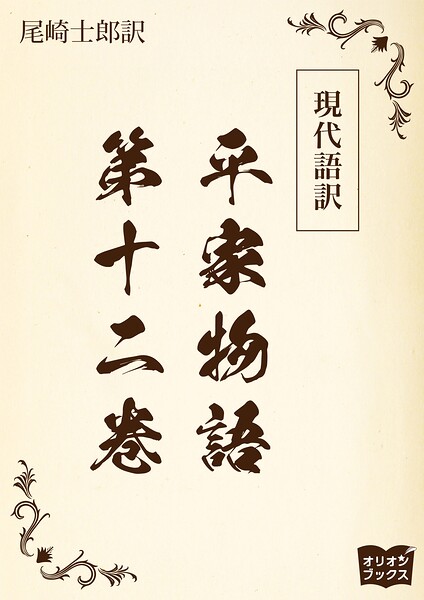 尾崎士郎訳
現代語訳
平家物語
第十二巻
オリオン
ブックス